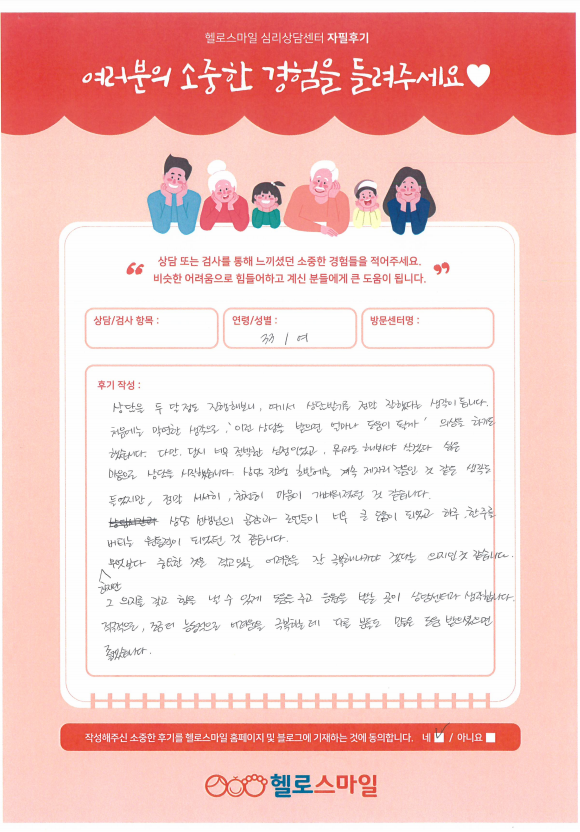 헬로스마일 심리상담센터 자필후기
여러분의 소중한 경험을 들려주세요
상담 또는 검사를 통해 느끼셨던 소중한 경험들을 적어주세요.
비슷한 어려움으로 힘들어하고 계신 분들에게 큰 도움이 됩니다.
상담/검사 항목 :
연령/성별 :
방문센터명 :
33 / 여
후기 작성 :
상담을 두 달 정도 진행해보니, 여기서 상담받기를 정말 잘했다는 생각이 듭니다.
처음에는 막연한 생각으로, '이런 상담을 받으면 얼마나 도움이 될까' 의심을 하기도
했습니다. 다만, 당시 너무 절박한 심정이었고, 뭐라도 해봐야 살겠다 싶은
마음으로 상담을 시작했습니다. 상담 진행 초반에는 계속 제자리 걸음인 것 같은 생각도
들었지만, 정말 서서히, 천천히 마음이 가벼워졌던 것 같습니다.
상담 선생님의 공감과 조언들이 너무 큰 도움이 되었고 하루, 한주를
버티는 원동력이 되었던 것 같습니다.
무엇보다 중요한 것은 갖고있는 어려움을 잘 극복해나가야 겠다는 의지인것 같습니다.
하지만
그 의지를 갖고 힘을 낼 수 있게 도움을 주고 응원을 받을 곳이 상담센터라 생각합니다.
적극적으로, 좀 더 능동적으로 어려움을 극복하는데 다른 분들도 많은 도움 받으셨으면
좋겠습니다.
작성해주신 소중한 후기를 헬로스마일 홈페이지 및 블로그에 기재하는 것에 동의합니다. 네 / 아니요
헬로스마일